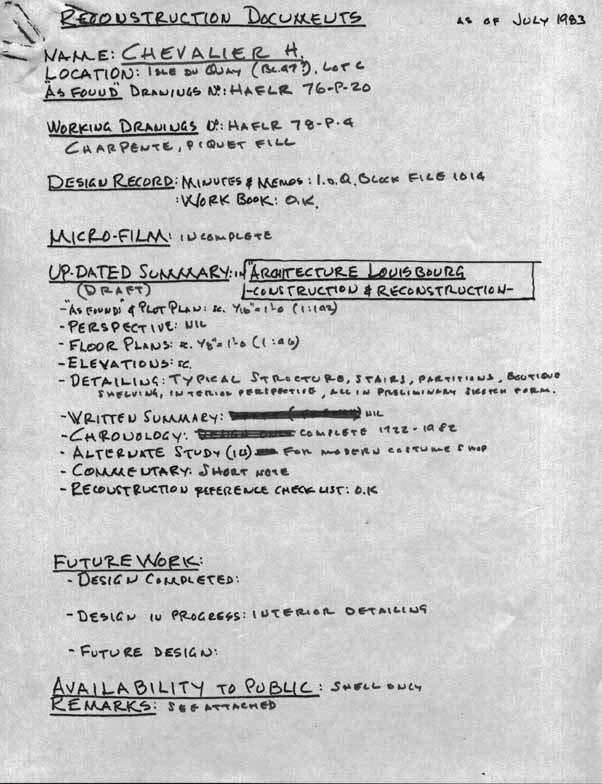 RECONSTRUCTION DOCUMENTS AS OF JULY 1983
NAME: CHEVALIER H.
LOCATION: ISLE DU QUAY (BL.G?), LOT C
"AS FOUND" DRAWINGS Nº: HAFLR 76-P-20
WORKING DRAWINGS Nº: HAFLR 78-P-4
CHARPENTE, PIQUET FILL
DESIGN RECORD: MINUTES & MEMOS: I.O.Q. BLOCK FILE 1014
: WORK BOOK: O.K.
MICRO-FILM: INCOMPLETE
UP-DATED SUMMARY: IN "ARCHITECTURE LOUISBOURG
(DRAFT) -CONSTRUCTION & RECONSTRUCTION-
- "AS FOUND" & PLOT PLAN: SC. 1/16"=1'-0 (1:192)
- PERSPECTIVE: NIL
- FLOOR PLANS: SC. 1/8"=1'-0 (1:96)
- ELEVATIONS: SC.
- DETAILING: TYPICAL STRUCTURE, STAIRS, PARTITIONS, BOUTIQUE
SHELVING, INTERIOR PERSPECTIVE, ALL IN PRELIMINARY SKETCH FORM.
- WRITTEN SUMMARY: NIL
- CHRONOLOGY: COMPLETE 1722-1982
- ALTERNATE STUDY (10) FOR MODERN COSTUME SHOP
- COMMENTARY: SHORT NOTE
- RECONSTRUCTION REFERENCE CHECK LIST: O.K
FUTURE WORK:
- DESIGN COMPLETED:
- DESIGN IN PROGRESS: INTERIOR DETAILING
- FUTURE DESIGN:
AVAILABILITY TO PUBLIC: SHELL ONLY
REMARKS: SEE ATTACHED